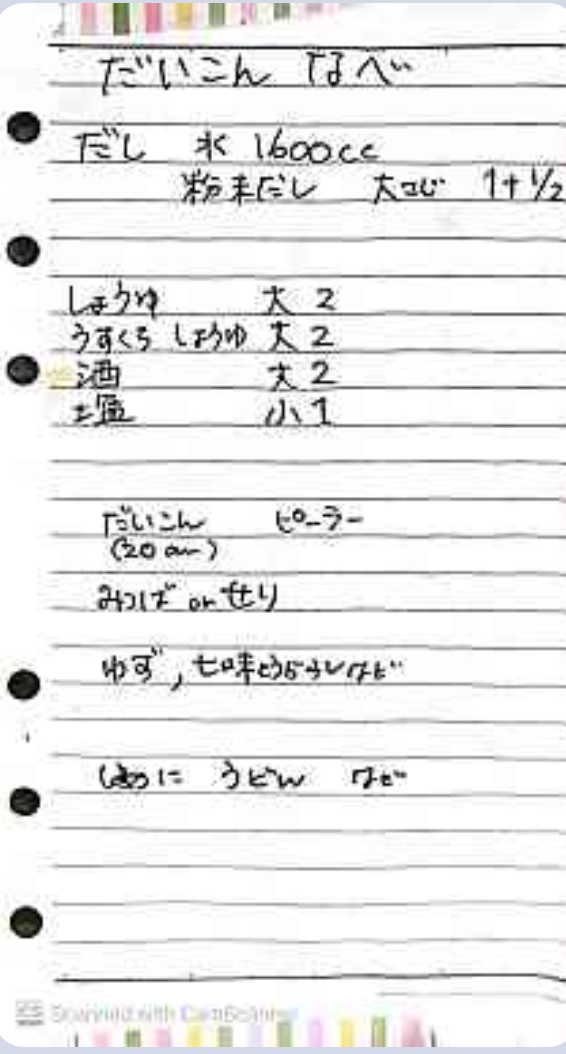 だいこん なべ
だし 水 1600cc
粉末だし 大さじ 1+1/2
しょうゆ 大 2
うすくち しょうゆ 大 2
酒 大 2
塩 小 1
だいこん ピーラー
(20cm)
みつば or せり
ゆず, 七味とうがらしなど
しめに うどん など
CS Scanned with CamScanner